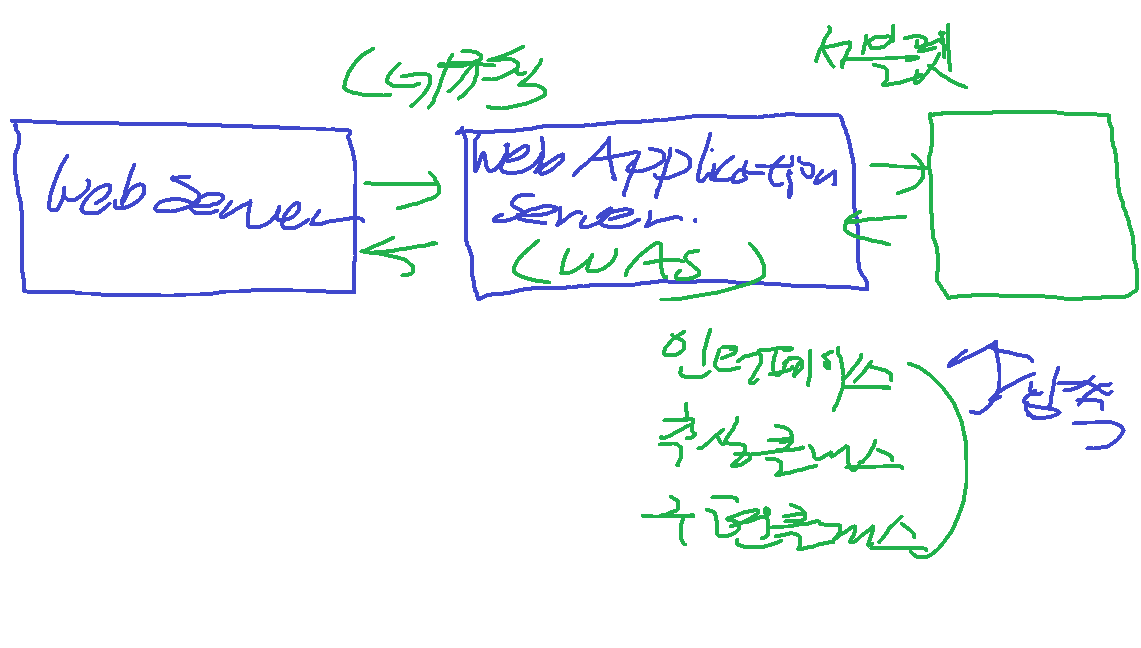 CGI규칙
서블렛
Web Server
Web Application
Server.
(WAS)
인터페이스
추상클래스
구현클래스
압축